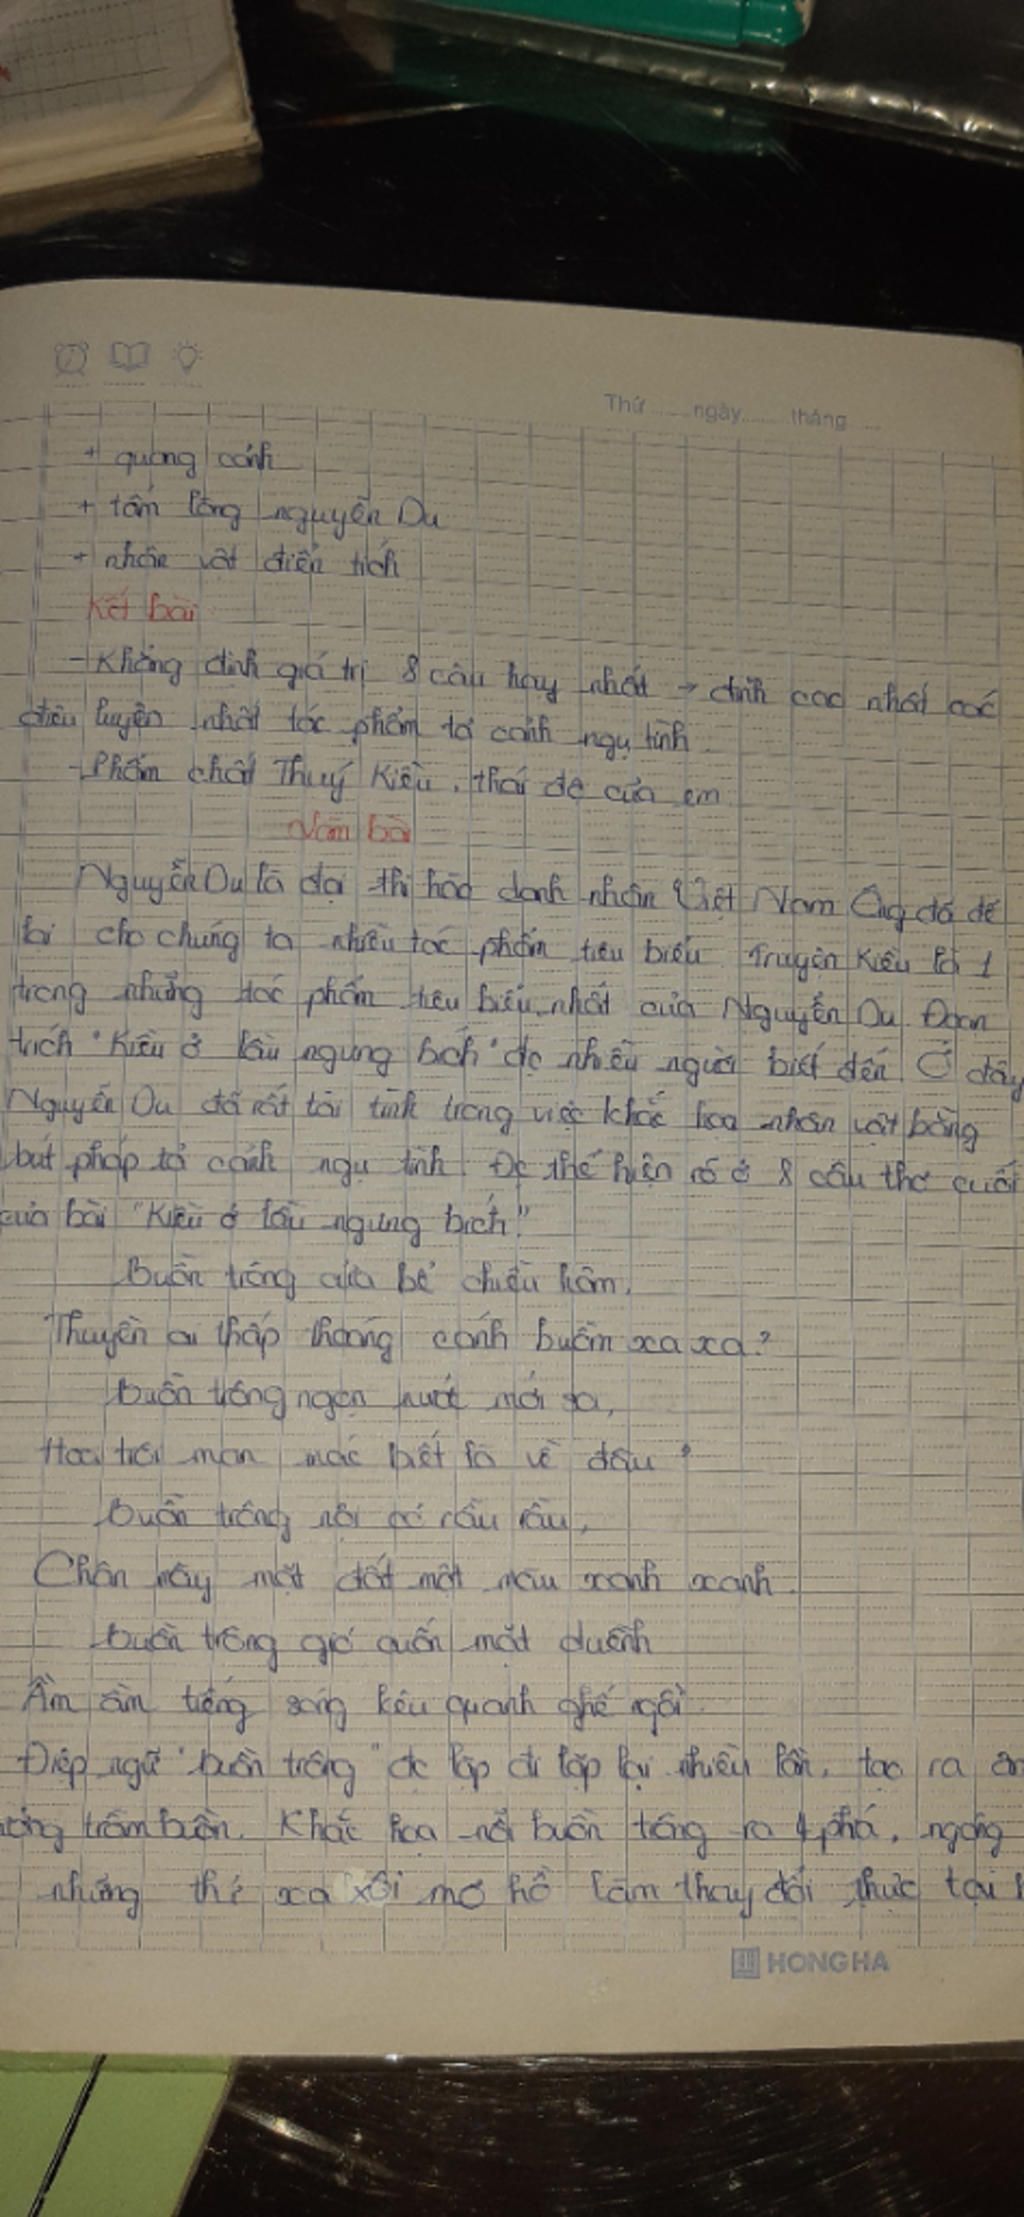 Thứ ...... ngày ...... tháng ...
+ quang cảnh
+ tấm lòng nguyễn Du
+ nhân vật điển tích
Kết bài
- Khẳng định giá trị 8 câu hay nhất → đỉnh cao nhất các
điêu luyện nhất tác phẩm tả cảnh ngụ tình
- Phẩm chất Thuý Kiều, thái độ của em
Làm bài
Nguyễn Du là đại thi hào danh nhân Việt Nam Ông đã để
lại cho chúng ta nhiều tác phẩm tiêu biểu Truyện Kiều là 1
trong những tác phẩm tiêu biểu nhất của Nguyễn Du. Đoạn
trích "Kiều ở lầu ngưng bích" đc nhiều người biết đến. Ở đây
Nguyễn Du đã rất tài tình trong việc khắc hoạ nhân vật bằng
bút pháp tả cảnh ngụ tình. Đc thể hiện rõ ở 8 câu thơ cuối
của bài "Kiều ở lầu ngưng bích"
Buồn trông cửa bể chiều hôm,
Thuyền ai thấp thoáng cánh buồm xa xa?
Buồn trông ngọn nước mới sa,
Hoa trôi man mác biết là về đâu?
Buồn trông nội cỏ rầu rầu,
Chân mây mặt đất một màu xanh xanh.
Buồn trông gió cuốn mặt duềnh
Ầm ầm tiếng sóng kêu quanh ghế ngồi.
Điệp ngữ "buồn trông" đc lặp đi lặp lại nhiều lần, tạo ra
trầm buồn. Khắc hoạ nỗi buồn trông ra 4 phía, ngóng
những thứ xa xôi mơ hồ làm thay đổi thực tại
HONG HA